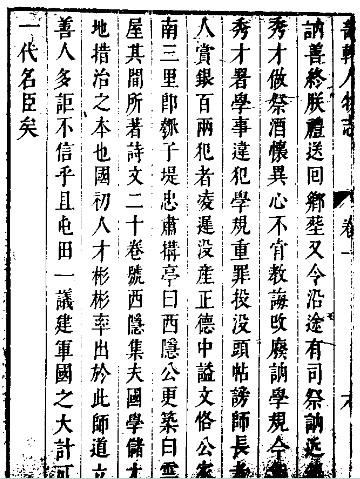 人物志
卷一
訥善終朕禮送回鄉塟又令沿途有司祭訥近
秀才做祭酒懷異心不肯教誨改廢訥學規今
秀才署學事違犯學規重罪投没頭帖謗師長者
人賞銀百兩犯者凌遲没産正德中謚文恪公
南三里卽鄒子堤忠肅搆亭曰西隱公更築曰雲
屋其間所著詩文二十卷號西隱集夫國學儲才
地措治之本也國初人才彬彬率出於此師道立
善人多詎不信乎且屯田一議建軍國之大計可
一代名臣矣